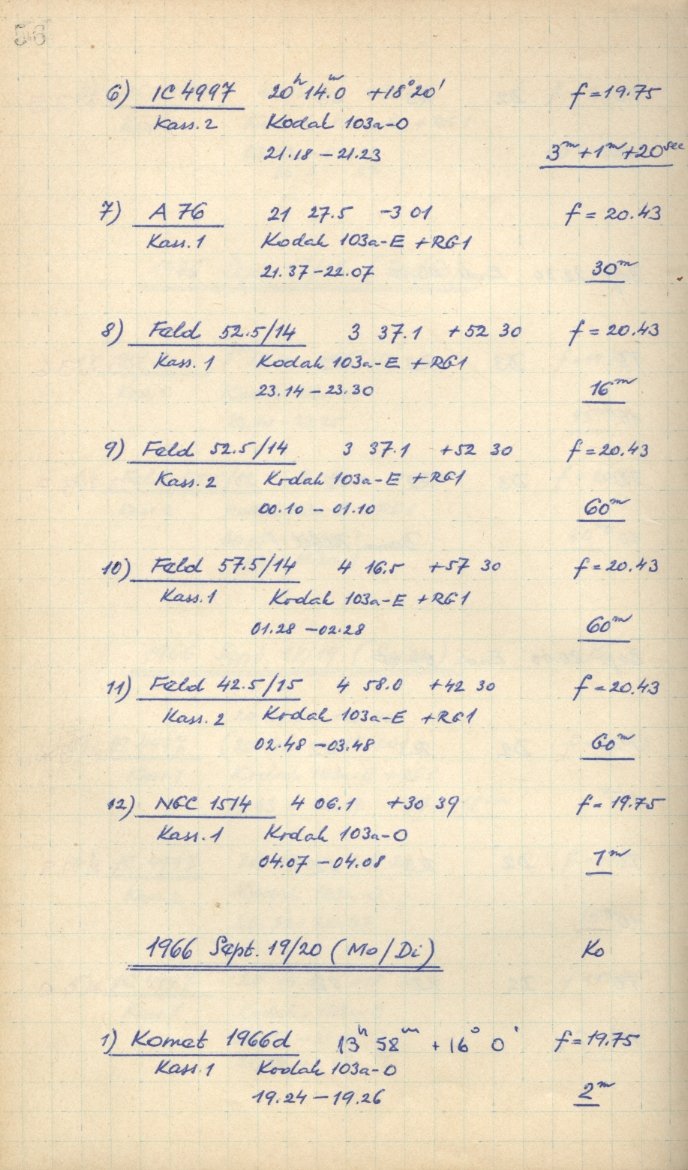 56
6) IC 4997 20ʰ 14.ᵐ0 +18°20' f = 19.75
Kass. 2 Kodak 103a-O
21.18 – 21.23 3ᵐ+1ᵐ+20ˢᵉᶜ
7) A 76 21 27.5 -3 01 f = 20.43
Kass. 1 Kodak 103a-E + RG1
21.37 – 22.07 30ᵐ
8) Feld 52.5/14 3 37.1 +52 30 f = 20.43
Kass. 1 Kodak 103a-E + RG1
23.14 – 23.30 16ᵐ
9) Feld 52.5/14 3 37.1 +52 30 f = 20.43
Kass. 2 Kodak 103a-E + RG1
00.10 – 01.10 60ᵐ
10) Feld 57.5/14 4 16.5 +57 30 f = 20.43
Kass. 1 Kodak 103a-E + RG1
01.28 – 02.28 60ᵐ
11) Feld 42.5/15 4 58.0 +42 30 f = 20.43
Kass. 2 Kodak 103a-E + RG1
02.48 – 03.48 60ᵐ
12) NGC 1514 4 06.1 +30 39 f = 19.75
Kass. 1 Kodak 103a-O
04.07 – 04.08 1ᵐ
1966 Sept. 19/20 (Mo/Di) Ko
1) Komet 1966d 13ʰ 58ᵐ +16° 0' f = 19.75
Kass. 1 Kodak 103a-O
19.24 – 19.26 2ᵐ